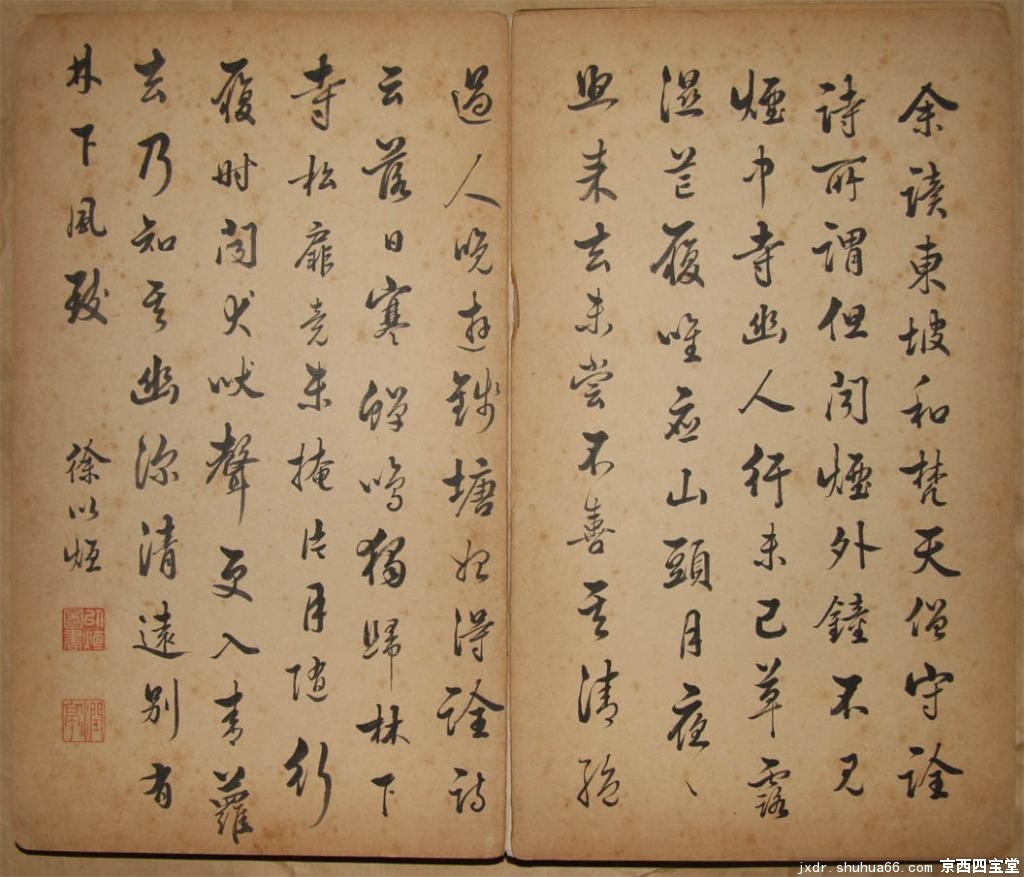 余读東坡和梵天僧守詮
詩所謂但闻煙外鐘不見
煙中寺幽人行未已草露
湿芒屨唯应山頭月夜、
照来去未尝不喜其清绝
過人晚遊錢塘始得詮诗
云落日寒蟬鳴獨歸林下
寺松扉竟未掩片月随行
屨时闻犬吠聲更入青蘿
去乃知其幽深清遠别有
林下風致
徐以烜
jxdr.shuhua66.com 京西四宝堂